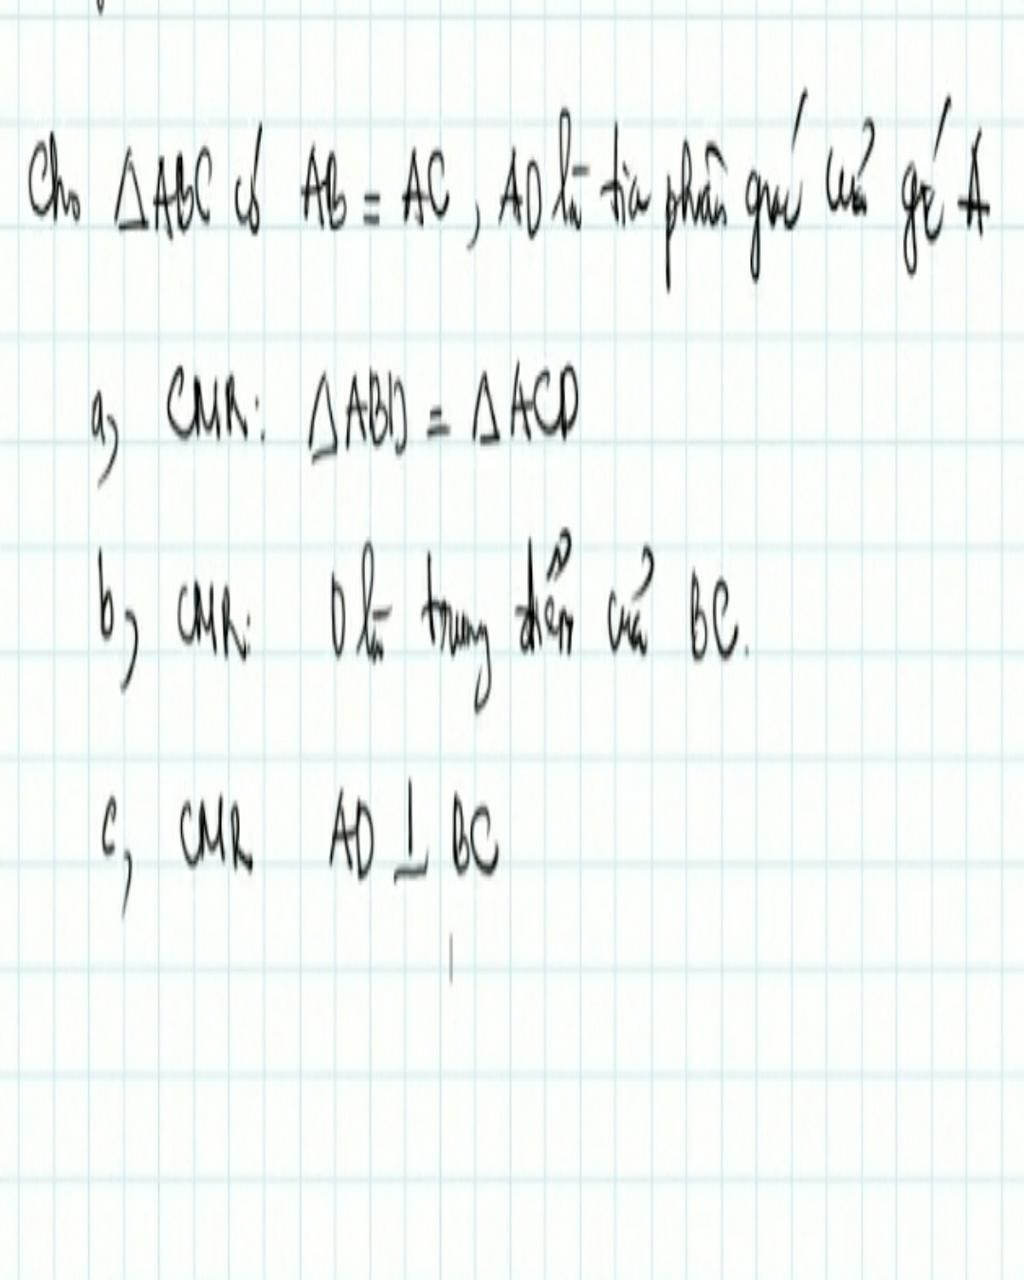 Cho ΔABC có AB = AC, AD là tia phân giác của góc A
a, CMR: ΔABD = ΔACD
b, CMR: D là trung điểm của BC.
c, CMR AD ⊥ BC